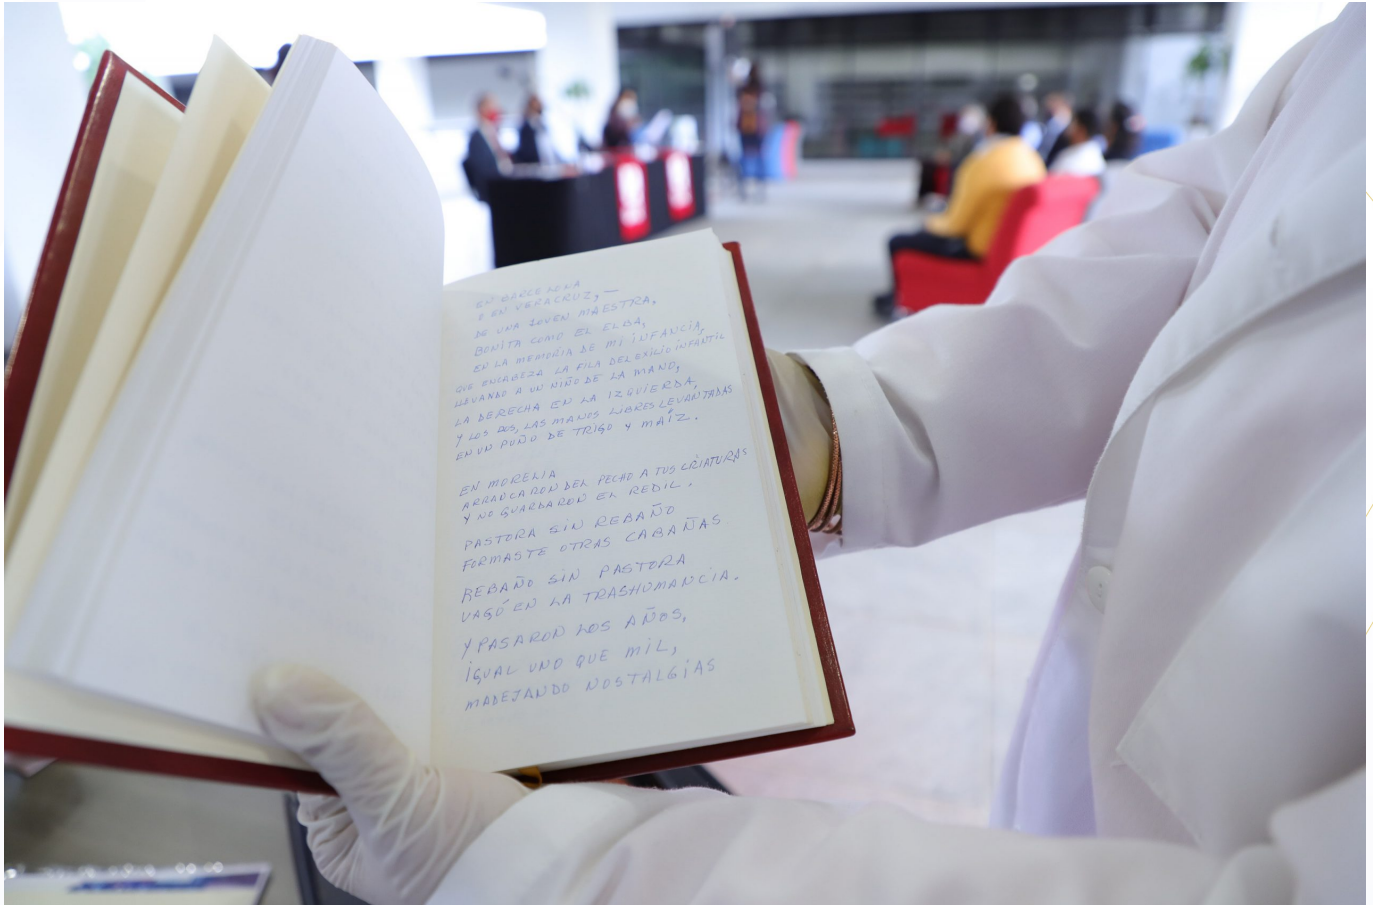 EN BARCELONA
O EN VERACRUZ, —
DE UNA JOVEN MAESTRA,
BONITA COMO EL ELBA,
EN LA MEMORIA DE MI INFANCIA,
QUE ENCABEZA LA FILA DEL EXILIO INFANTIL
LLEVANDO A UN NIÑO DE LA MANO,
LA DERECHA EN LA IZQUIERDA,
Y LOS DOS, LAS MANOS LIBRES LEVANTADAS
EN UN PUÑO DE TRIGO Y MAÍZ.
EN MORELIA
ARRANCARON DEL PECHO A TUS CRIATURAS
Y NO GUARDARON EL REDIL.
PASTORA SIN REBAÑO
FORMASTE OTRAS CABAÑAS
REBAÑO SIN PASTORA
VAGÓ EN LA TRASHUMANCIA.
Y PASARON LOS AÑOS,
IGUAL UNO QUE MIL,
MADEJANDO NOSTALGIAS